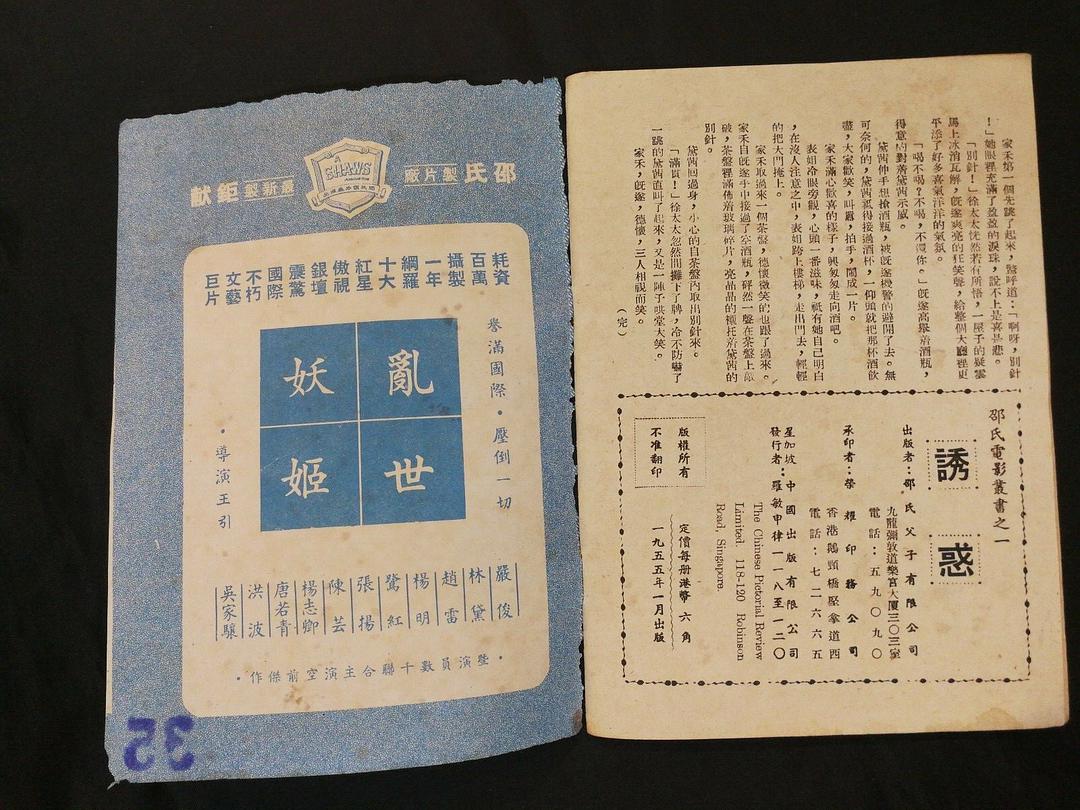 家禾第一個先跳了起來，驚呼道：「啊呀，別針
！」她眼裡充滿了盈盈的淚珠，說不上是喜是悲。
「別針！」徐太太恍然若有所悟，一屋子的疑雲
馬上冰消瓦解，旣遂爽亮的狂笑聲，給整個大廳裡更
平添了好多喜氣洋洋的氣氛。
「喝不喝？不喝，不還你。」旣遂高舉着酒瓶，
得意的對着黛茜示威。
黛茜伸手想搶酒瓶，被旣遂機警的避開了去。無
可奈何的，黛茜祗得接過酒杯，一仰頭就把那杯酒飲
盡，大家歡笑，叫囂，拍手，鬧成一片。
家禾滿心歡喜的樣子，興匆匆走向酒吧。
表姐冷眼旁觀，心頭一番滋味，祗有她自己明白
，在沒人注意之中，表姐跨上樓梯，走出門去，輕輕
的把大門掩上。
家禾取過來一個茶盤，德懷微笑的也跟了過來。
家禾自旣遂手中接過了空酒瓶，砰然一聲在茶盤上敲
破，茶盤裡滿佈着玻璃碎片，亮晶晶的襯托着黛茜的
別針。
黛茜回過身，小心的自茶盤內取出別針來。
「滿貫！」徐太太忽然間攤下了牌，冷不防嚇了
一跳的黛茜直叫了起來，又是一陣子哄堂大笑。
家禾，旣遂，德懷，三人相視而笑。
（完）
邵氏電影叢書之一
誘惑
出版者：邵氏父子有限公司
九龍彌敦道樂宮大廈三〇三室
電話：五九〇九〇
承印者：榮耀印務公司
香港鵝頸橋堅拿道西
電話：七二六六五
星加坡 中國出版有限公司
發行者：羅敏申律一一八至一二〇
The Chinese Pictorial Review
Limited. 118-120 Robinson
Road, Singapore.
定價每册港幣六角
一九五五年一月出版
版權所有
不准翻印
邵氏製片廠
SHAWS
最新製鉅献
耗資百萬
攝製一年
綱羅十大紅星
傲視銀壇
震驚國際
不朽文藝巨片
譽滿國際・壓倒一切
亂世妖姬
・導演王引
嚴俊
林黛
趙雷
楊明
鷺紅
張揚
陳芸
楊志卿
唐若青
洪波
吳家驤
・暨演員數十聯合主演空前傑作・
35